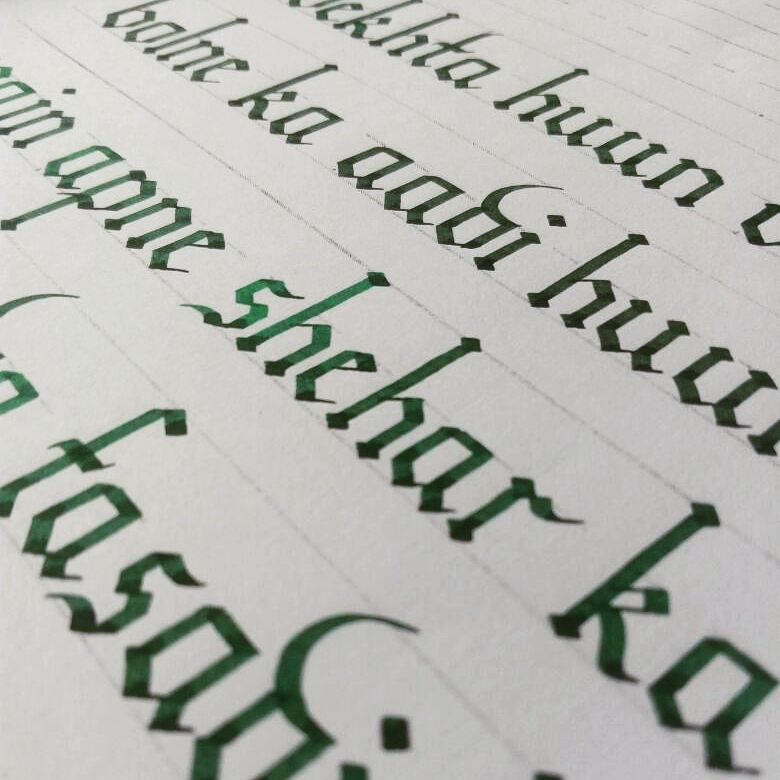 dekhta huun
bolne ka aadi huun
main apne shehar ka
fasadi